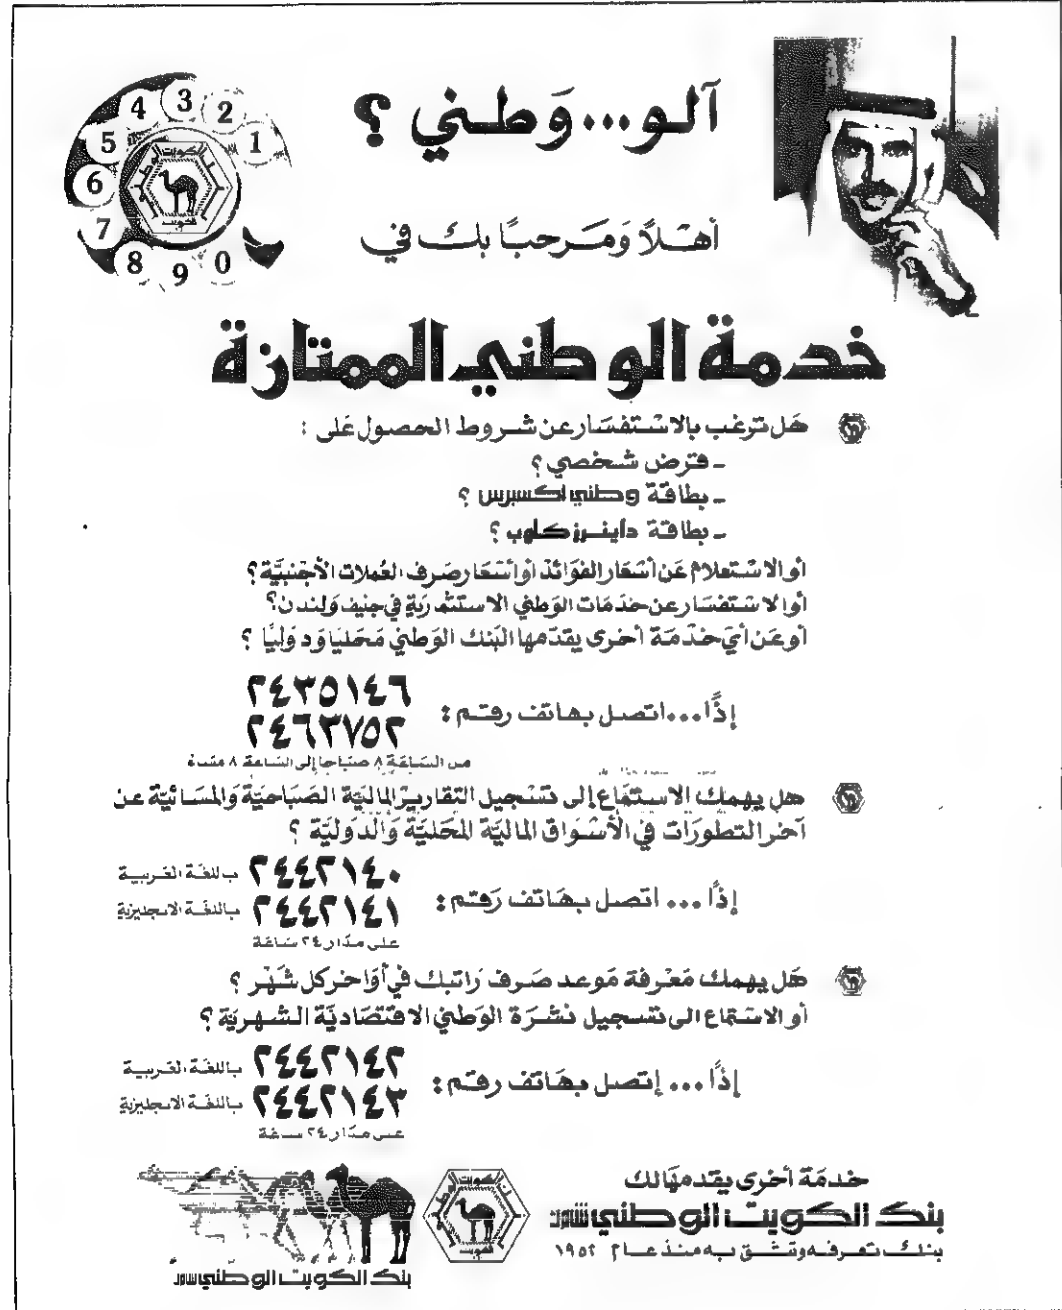 آلو...وَطني ؟
4 3 2 1 5 6 7 8 9 0
بنك الكويت الوطني
الكويت
أهلاً وَمَرحبًا بك في
خدمة الوطني الممتازة
هَل ترغب بالاسْتفسَار عن شروط الحصول عَلى :
- قرض شخصي ؟
- بطاقة وطني اكسبرس ؟
- بطاقة داينرز كلوب ؟
أو الاسْتعلام عَن أسْعَار الفوَائد أو أسْعَار صَرف العُملات الأجنبيَّة ؟
أو الاسْتفسَار عن خدَمَات الوَطني الاستثمريَة في جنيف وَلندن؟
أو عَن أيّ خدْمَة أخرى يقدّمها البَنك الوَطني مَحَليًا وَدوَليًا ؟
إذًا...اتصل بهاتف رقم : ٢٤٣٥١٤٦
٢٤٦٣٧٥٢
من السَاعَة ٨ صبَاحا إلى السَاعة ٨ مسَاء
هل يهمك الاستمَاع إلى تسْجيل التقارير الماليَة الصَبَاحيَة وَالمسَائيَة عن
آخر التطورَات في الأسْوَاق الماليَة المحَليَّة وَالدوَليَّة ؟
إذًا ... اتصل بهَاتف رَقم : ٢٤٤٢١٤٠ باللغَة العَربية
٢٤٤٢١٤١ باللغَة الانجليزية
على مدَار ٢٤ سَاعَة
هَل يهمك مَعْرفة مَوعد صَرف رَاتبك في أوَاخر كل شَهْر ؟
أو الاسْتماع الى تسجيل نشرَة الوَطني الاقتصَاديَّة الشهريَة ؟
إذًا ... إتصل بهَاتف رقم : ٢٤٤٢١٤٢ باللغَة العَربية
٢٤٤٢١٤٣ باللغَة الانجليزية
على مدَار ٢٤ سَاعَة
خدمَة أخرى يقدمهَا لك
بنك الكويت الوطني شمك
بنك تعرفه وتثق به منذ عام ١٩٥٢
بنك الكويت الوطني
الكويت
بنك الكويت الوطني شمك